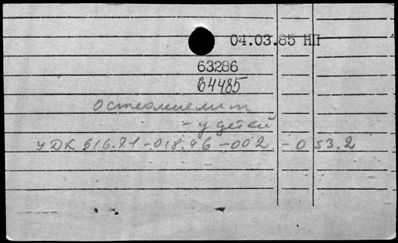 04.03.85 НП
63286
64485
Остеомиелит
- у детей
УДК 616.71-018.46-002-053.2